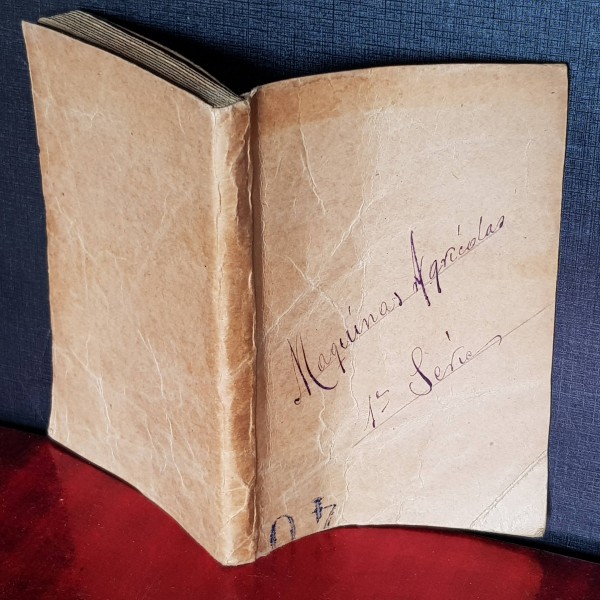 Maquinas Agricolas
1ª Série